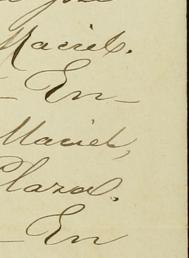 Maciel.
– En –
Maciel,
Plaza.
– En